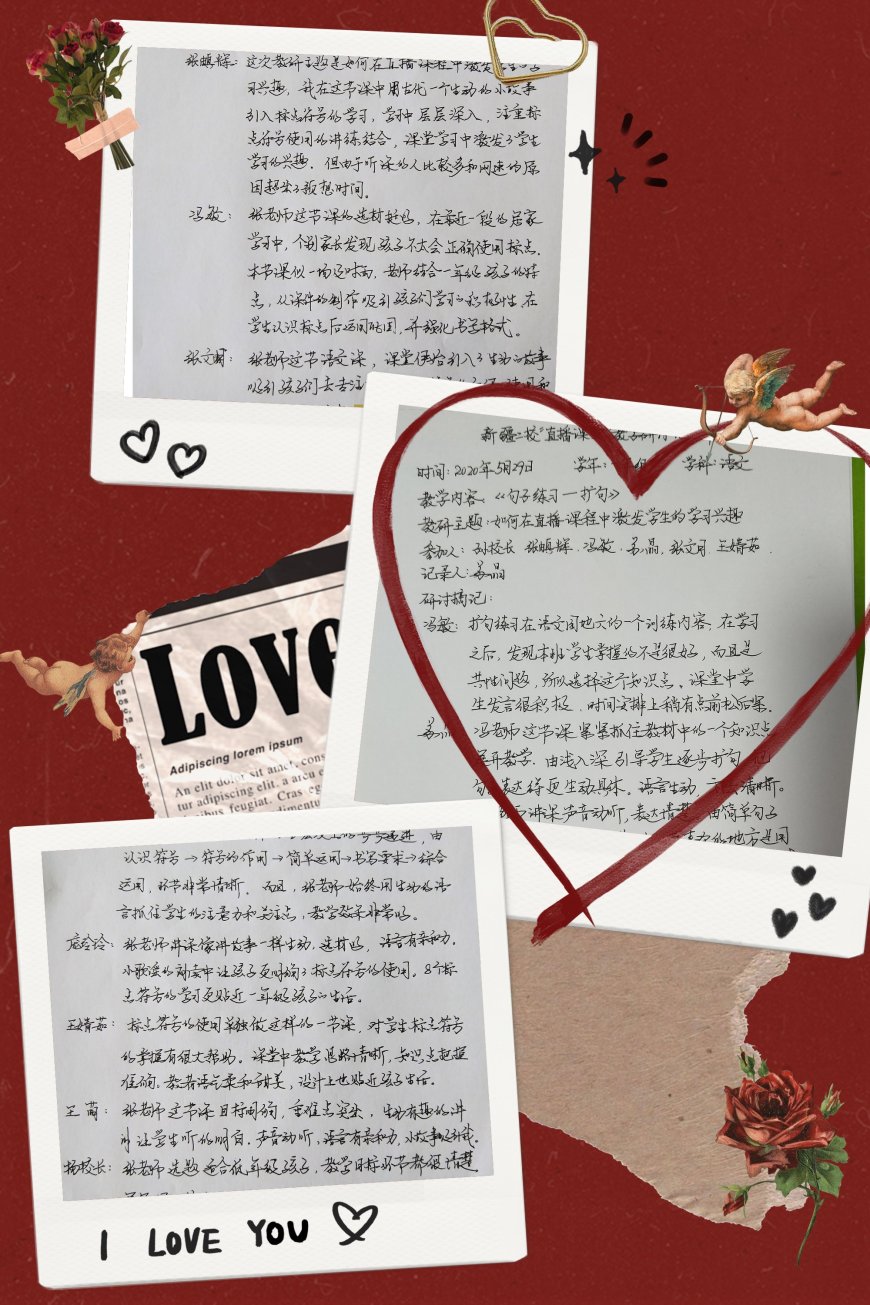 张鹏辉：这次教研主题是如何在直播课程中激发学生的学
习兴趣，我在这节课中用古代一个生动的小故事
引入标点符号的学习，学习中层层深入，注重标
点符号使用的讲练结合，课堂学习中激发了学生
学习的兴趣。但由于听课的人比较多和网速的原
因超出了预想时间。
冯敏：张老师这节课的选材挺好，在最近一段的居家
学习中，个别家长发现孩子不太会正确使用标点。
本节课似一场及时雨，老师结合一年级孩子的特
点，从课件的制作吸引孩子们学习的积极性，在
学生认识标点后运用巩固，并强化书写格式。
张文月：张老师这节语文课，课堂伊始引入了生动的故事
吸引孩子们去关注
新疆二校"直播课
时间：2020年5月29日 学年： 学科：语文
教学内容：《句子练习——扩句》
教研主题：如何在直播课程中激发学生的学习兴趣
参加人：孙校长 张鹏辉、冯敏、苏晶、张文月、王婧茹、
记录人：苏晶
研讨摘记：
冯敏：扩句练习在语文园地六的一个训练内容，在学习
之后，发现本班学生掌握的不是很好，而且是
共性问题，所以选择这个知识点。课堂中学
生发言很积极，时间安排上稍有点前松后紧。
苏晶 冯老师这节课紧紧抓住教材中的一个知识点
展开教学，由浅入深引导学生逐步扩句，把
句子表达得更生动具体。语言生动，清晰。
讲课声音动听，表达清楚，由简单句子
的地方运用
Love
Adipiscing lorem ipsum
An elit dolor sit amet, cons
tur adipiscing elit. a arcu e
feugiat. Cras eg
递进，由
认识符号→符号的作用→简单运用→书写要求→综合
运用，环节非常清晰。而且，张老师始终用生动的语
言抓住学生的注意力和关注点，教学效果非常好。
庞玲玲：张老师讲课像讲故事一样生动，选材好，语言有亲和力。
小歌谣的韵律中让孩子更明确了标点符号的使用。8个标
点符号的学习更贴近一年级孩子的生活。
王婧茹：标点符号的使用单独做这样的一节课，对学生标点符号
的掌握有很大帮助。课堂中教学思路清晰，知识点把握
准确。教者语气柔和甜美，设计上也贴近孩子生活。
王萌：张老师这节课目标明确，重难点突出，生动有趣的讲
解让学生听的明白。声音动听，语言有亲和力，小故事吸引我。
杨校长：张老师选题适合低年级孩子，教学目标环节都很清楚
I LOVE YOU